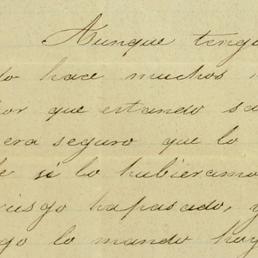 Aunque tengo
do hace muchos
or que estando sa
era seguro que lo
e si lo hubieramo
riesgo hapasado, y
go lo mando hoy